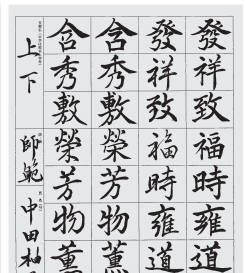 發祥致福時雍道
發祥致福時雍道
含秀敷榮芳物薰
含秀敷榮芳物薰
上下
師範 中田